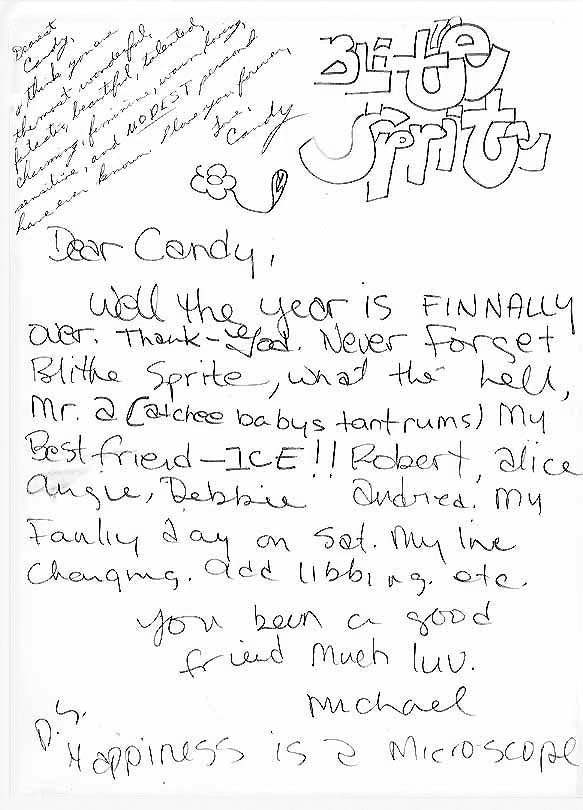 Dearest
Candy,
I think you are
the most wonderful,
beautiful, talented,
charming, feminine, warm, loving,
sensitive, and MODEST person I
have ever known. I love you forever,
Love,
Candy
Blithe
Sprite
Dear Candy,
Well the year is FINNALLY
over. Thank-God. Never Forget
Blithe Sprite, what the hell,
Mr. a (atchee babys tantrums) My
Best friend-ICE!! Robert, alice
angie, Debbie andrea. My
Faniliy day on Sat. My line
Changing. add libbing. etc.
You been a good
friend Much luv.
Michael
P.S.
Happiness is a Microscope